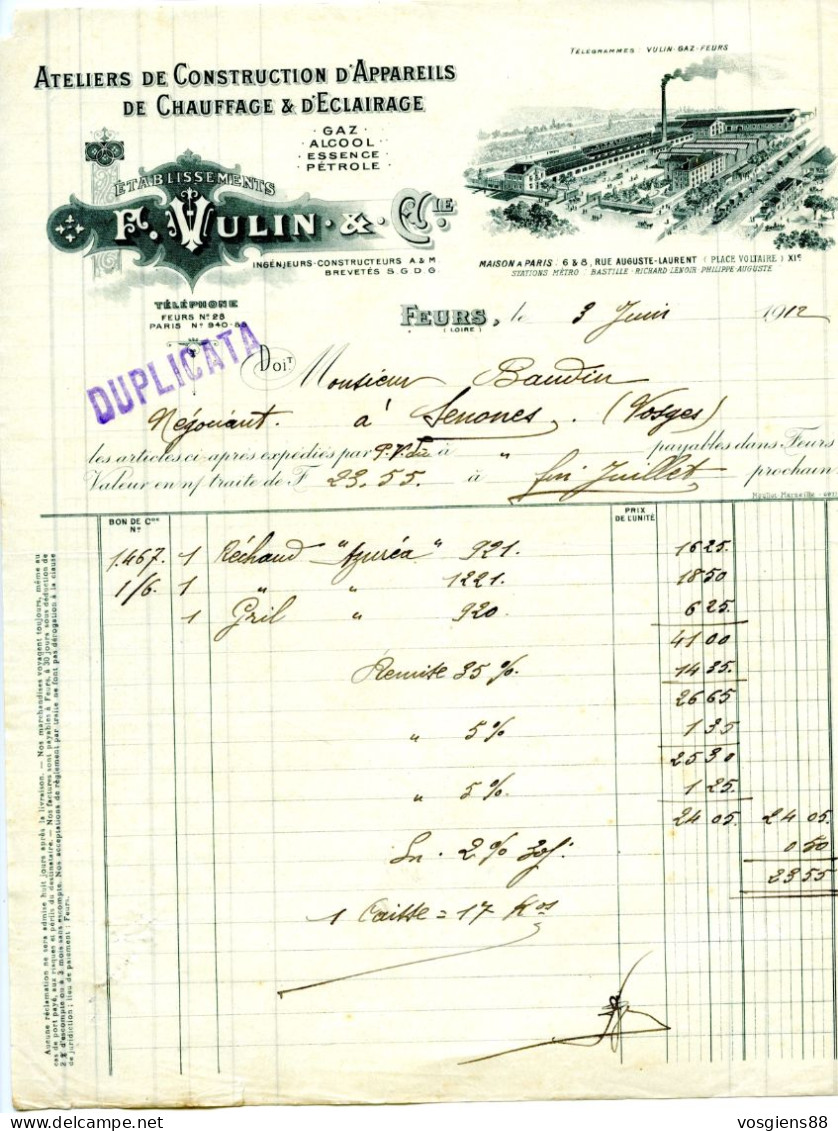 TÉLÉGRAMMES : VULIN-GAZ-FEURS
ATELIERS DE CONSTRUCTION D'APPAREILS
DE CHAUFFAGE & D'ECLAIRAGE
GAZ
ALCOOL
ESSENCE
PÉTROLE
ETABLISSEMENTS
F. VULIN & CIE
INGÉNIEURS-CONSTRUCTEURS A. & M.
BREVETÉS S.G.D.G.
MAISON A PARIS : 6 & 8, RUE AUGUSTE-LAURENT (PLACE VOLTAIRE) XIe
STATIONS MÉTRO : BASTILLE-RICHARD LENOIR PHILIPPE-AUGUSTE
TÉLÉPHONE
FEURS No 28
PARIS No 940-8
DUPLICATA
FEURS, le 3 Juin 1912
(LOIRE)
Doit Monsieur Baudin
Négociant. à Senones. (Vosges)
les articles ci-après expédiés par P.V. à " payables dans Feurs
Valeur en n/ traite de F 23.55. à fin Juillet prochain
BON DE Cde No
PRIX DE L'UNITÉ
1.467. 1 Réchaud "Azuréa" 921. 16 25.
1/6. 1 " " 1221. 18 50
1 Gril " 920. 6 25.
41 00
Remise 35 %. 14 35.
26 65
" 5 % 1 35
25 30
" 5 %. 1 25.
24 05. 24 05.
2 % 30j. 0 50
23 55
1 Caisse = 17 Kos
Aucune réclamation ne sera admise huit jours après la livraison. — Nos marchandises voyagent toujours, même au
cas de port payé, aux risques et périls du destinataire. — Nos factures sont payables à Feurs, à 30 jours sous déduction de
2 % d'escompte ou à 3 mois sans escompte. Nos acceptations de règlement par traite ne font pas dérogation à la clause
de juridiction ; lieu de paiement : Feurs.
vosgiens88